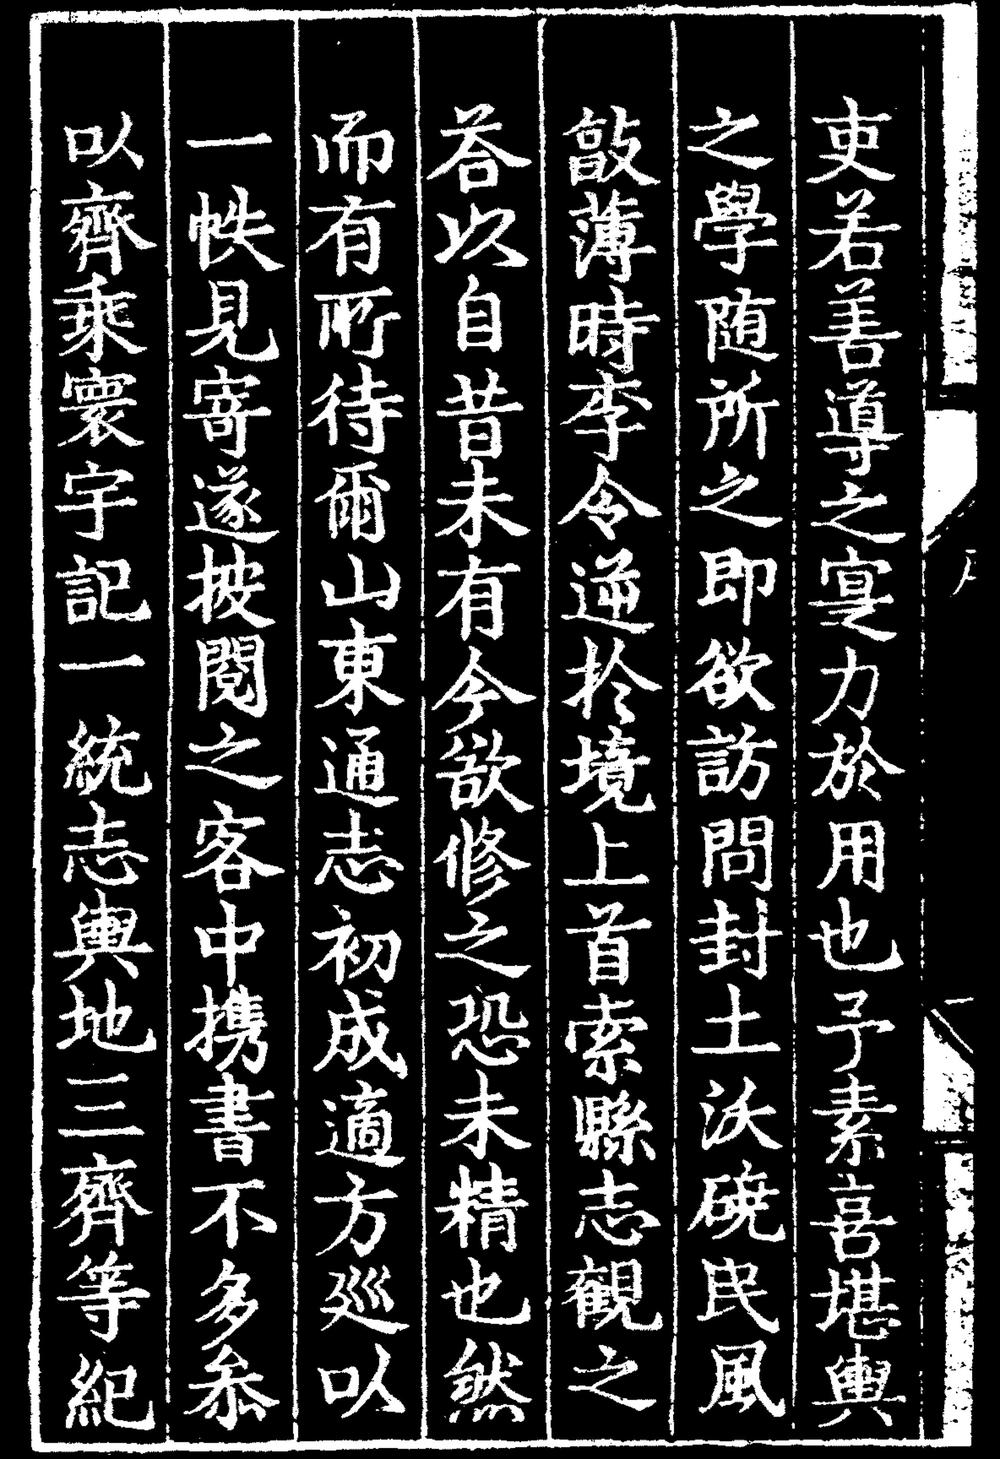 吏若善導之寔力於用也予素喜堪輿
之學随所之即欲訪問封土沃磽民風
敦薄時李令逆扵境上首索縣志觀之
荅以自昔未有今欲修之恐未精也然
而有所待爾山東通志初成適方廵以
一帙見寄遂披閱之客中携書不多叅
以齊乘寰宇記一統志輿地三齊等紀